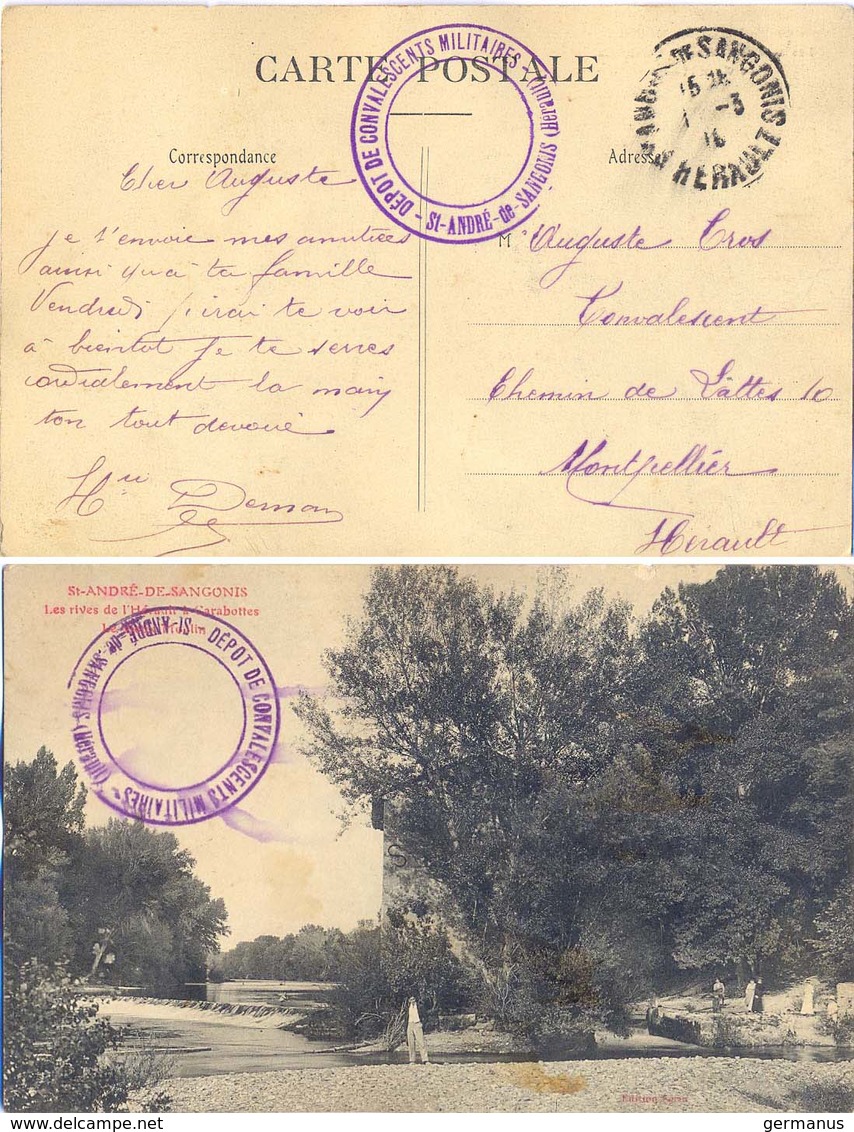 CARTE POSTALE
DÉPOT DE CONVALESCENTS MILITAIRES - St-ANDRÉ-de-SANGONIS (Hérault)
DE SANGONIS
HERAULT
Correspondance
Adresse
Cher Auguste
je t'envoie mes amitiées
ainsi qu'à ta famille
Vendredi j'irai te voir
à bientot Je te serres
cordialement la main
ton tout devoué
M Auguste Cros
Convalescent
Chemin de Lattes 10
Montpellier
Hérault
St-ANDRÉ-DE-SANGONIS
Les rives de l'Hérault à Carabottes
DÉPOT DE CONVALESCENTS MILITAIRES - St-ANDRÉ-de-SANGONIS (Hérault)
Edition
germanus